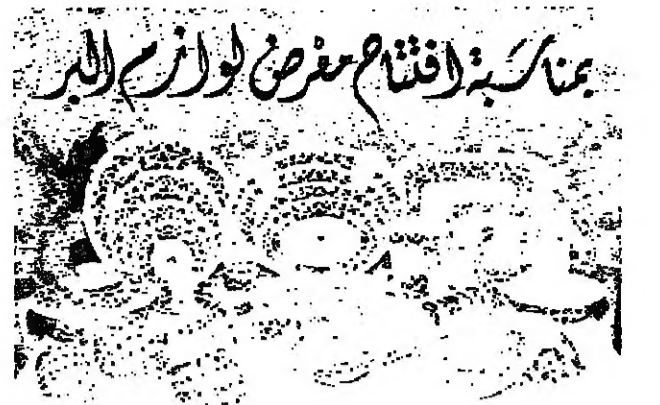 بمناسبة افتتاح معرض لوازم البر